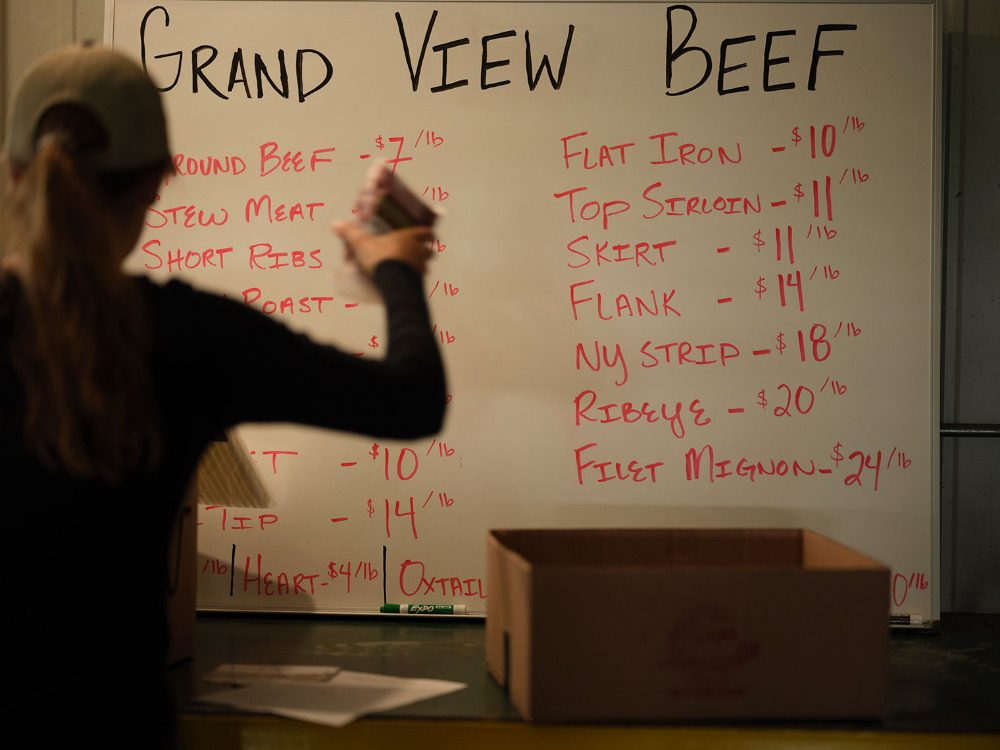 GRAND VIEW BEEF
ROUND BEEF - $7/lb
STEW MEAT /lb
SHORT RIBS
ROAST - /lb
$ /lb
- $10/lb
TIP - $14/lb
/lb | HEART - $4/lb | OXTAIL
FLAT IRON - $10/lb
TOP SIRLOIN - $11/lb
SKIRT - $11/lb
FLANK - $14/lb
NY STRIP - $18/lb
RIBEYE - $20/lb
FILET MIGNON - $24/lb
0/lb
EXPO